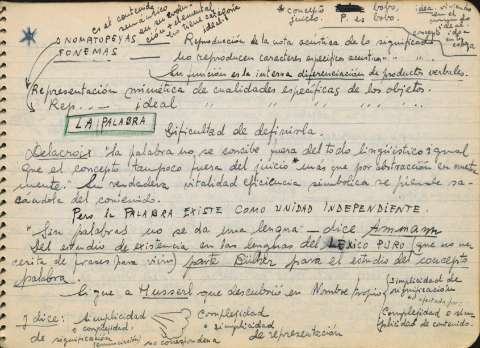 es el contenido
semántico
en su evolu-
ción + elemental
no tiene categoría
ideal!
*concepto bobo. idea
juicio. P. es bobo.
concepto
idea
en la
ONOMATOPEYAS Reproducción de la nota acústica de lo significado
FONEMAS no reproducen caracteres específicos acústicos " "
su función es la intensa diferenciación de productos verbales.
Representación mimética de cualidades específicas de los objetos.
Rep. ideal " " " " "
LA PALABRA
Dificultad de definirla.
Delacroix "la palabra no se concibe fuera del todo lingüístico igual
que el concepto tampoco fuera del juicio "más que por abstracción en nuestra
mente". Su verdadera vitalidad eficiencia simbólica se pierde sa-
cándola del contenido.
Pero la PALABRA EXISTE COMO UNIDAD INDEPENDIENTE.
"Sin palabras no se da una lengua — dice Ammann
Del estudio de existencia en las lenguas del LÉXICO PURO (que no ne-
cesita de frases para vivir) parte Bühler para el estudio del concepto
palabra.
Sigue a Husserl que descubrió en Nombre propio
simplicidad de
significación
complejidad o sim-
plicidad de contenido.
y dice: simplicidad Complejidad
o complejidad o simplicidad
de significación no corresponde de representación
(enunciación)